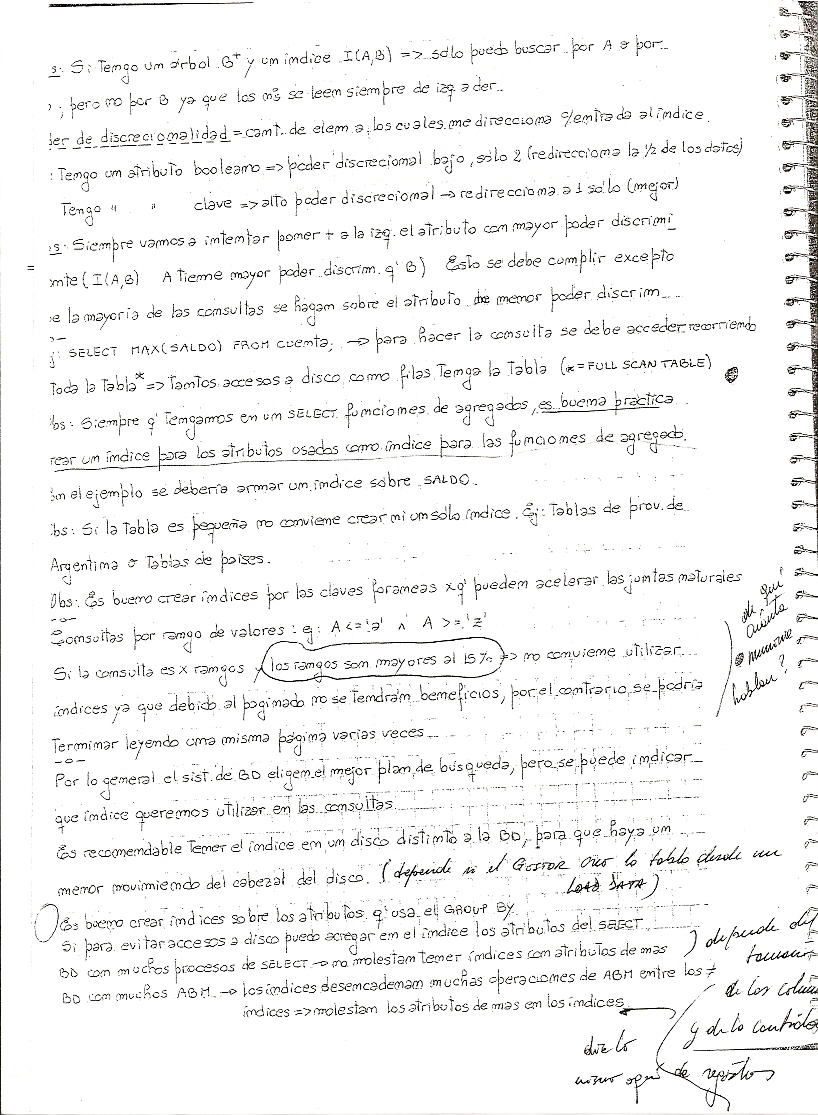 s: Si Tengo un árbol B+ y un índice I(A,B) => sólo puedo buscar por A o por
, pero no por B ya que los nº's se leem siempre de izq a der.
der de discrecionalidad = cant. de elem a los cuales me direcciona c/entrada al índice.
: Tengo un atributo booleano => poder discrecional bajo, sólo 2 (redirecciona la 1/2 de los datos)
Tengo " " clave => alto poder discrecional → redirecciona a 1 sólo (mejor)
os: Siempre vamos a intentar poner + a la izq. el atributo con mayor poder discrimi
=
nte (I(A,B) A tiene mayor poder discrim. q' B) Esto se debe cumplir excepto
e la mayoría de las consultas se hagan sobre el atributo de menor poder discrim
j: SELECT MAX(SALDO) FROM cuenta; → para hacer la consulta se debe acceder recorriendo
Toda la Tabla* => Tantos accesos a disco como filas Tenga la Tabla (*=FULL SCAN TABLE)
bs: Siempre q' Tengamos en un SELECT funciones de agregados, es buena práctica
rear un índice para los atributos usados como índice para las funciones de agregado.
n el ejemplo se debería armar un índice sobre SALDO.
bs: Si la Tabla es pequeña no conviene crear ni un sólo índice. Ej: Tablas de prov. de
Argentina o Tablas de países.
Obs: Es bueno crear índices por las claves foraneas xq' pueden acelerar las juntas naturales
Consultas por rango de valores: ej: A <= 'a' ^ A >= 'z'
Si la consulta es x rangos y los rangos son mayores al 15% => no conviene utilizar
índices ya que debido al paginado no se tendrán beneficios, por el contrario se podría
Terminar leyendo una misma página varias veces
de qué
mienten
hablan?
Por lo general el sist. de BD eligem el mejor plan de búsqueda, pero se puede indicar
que índice queremos utilizar en las consultas
Es recomendable Tener el índice en un disco distinto a la BD, para que haya un
menor movimiendo del cabezal del disco. (depende si el GESTOR la tabla desde un
LOAD DATA)
Es bueno crear índices sobre los atributos q' usa el GROUP BY
Si para evitar accesos a disco puedo agregar en el índice los atributos del SELECT
BD com muchos procesos de SELECT → no molestan tener índices con atributos de mas
BD com muchos ABM → los índices desencadenan muchas operaciones de ABM entre los ≠
índices => molestan los atributos de mas en los índices
) depende del
de las
y de la
de registros